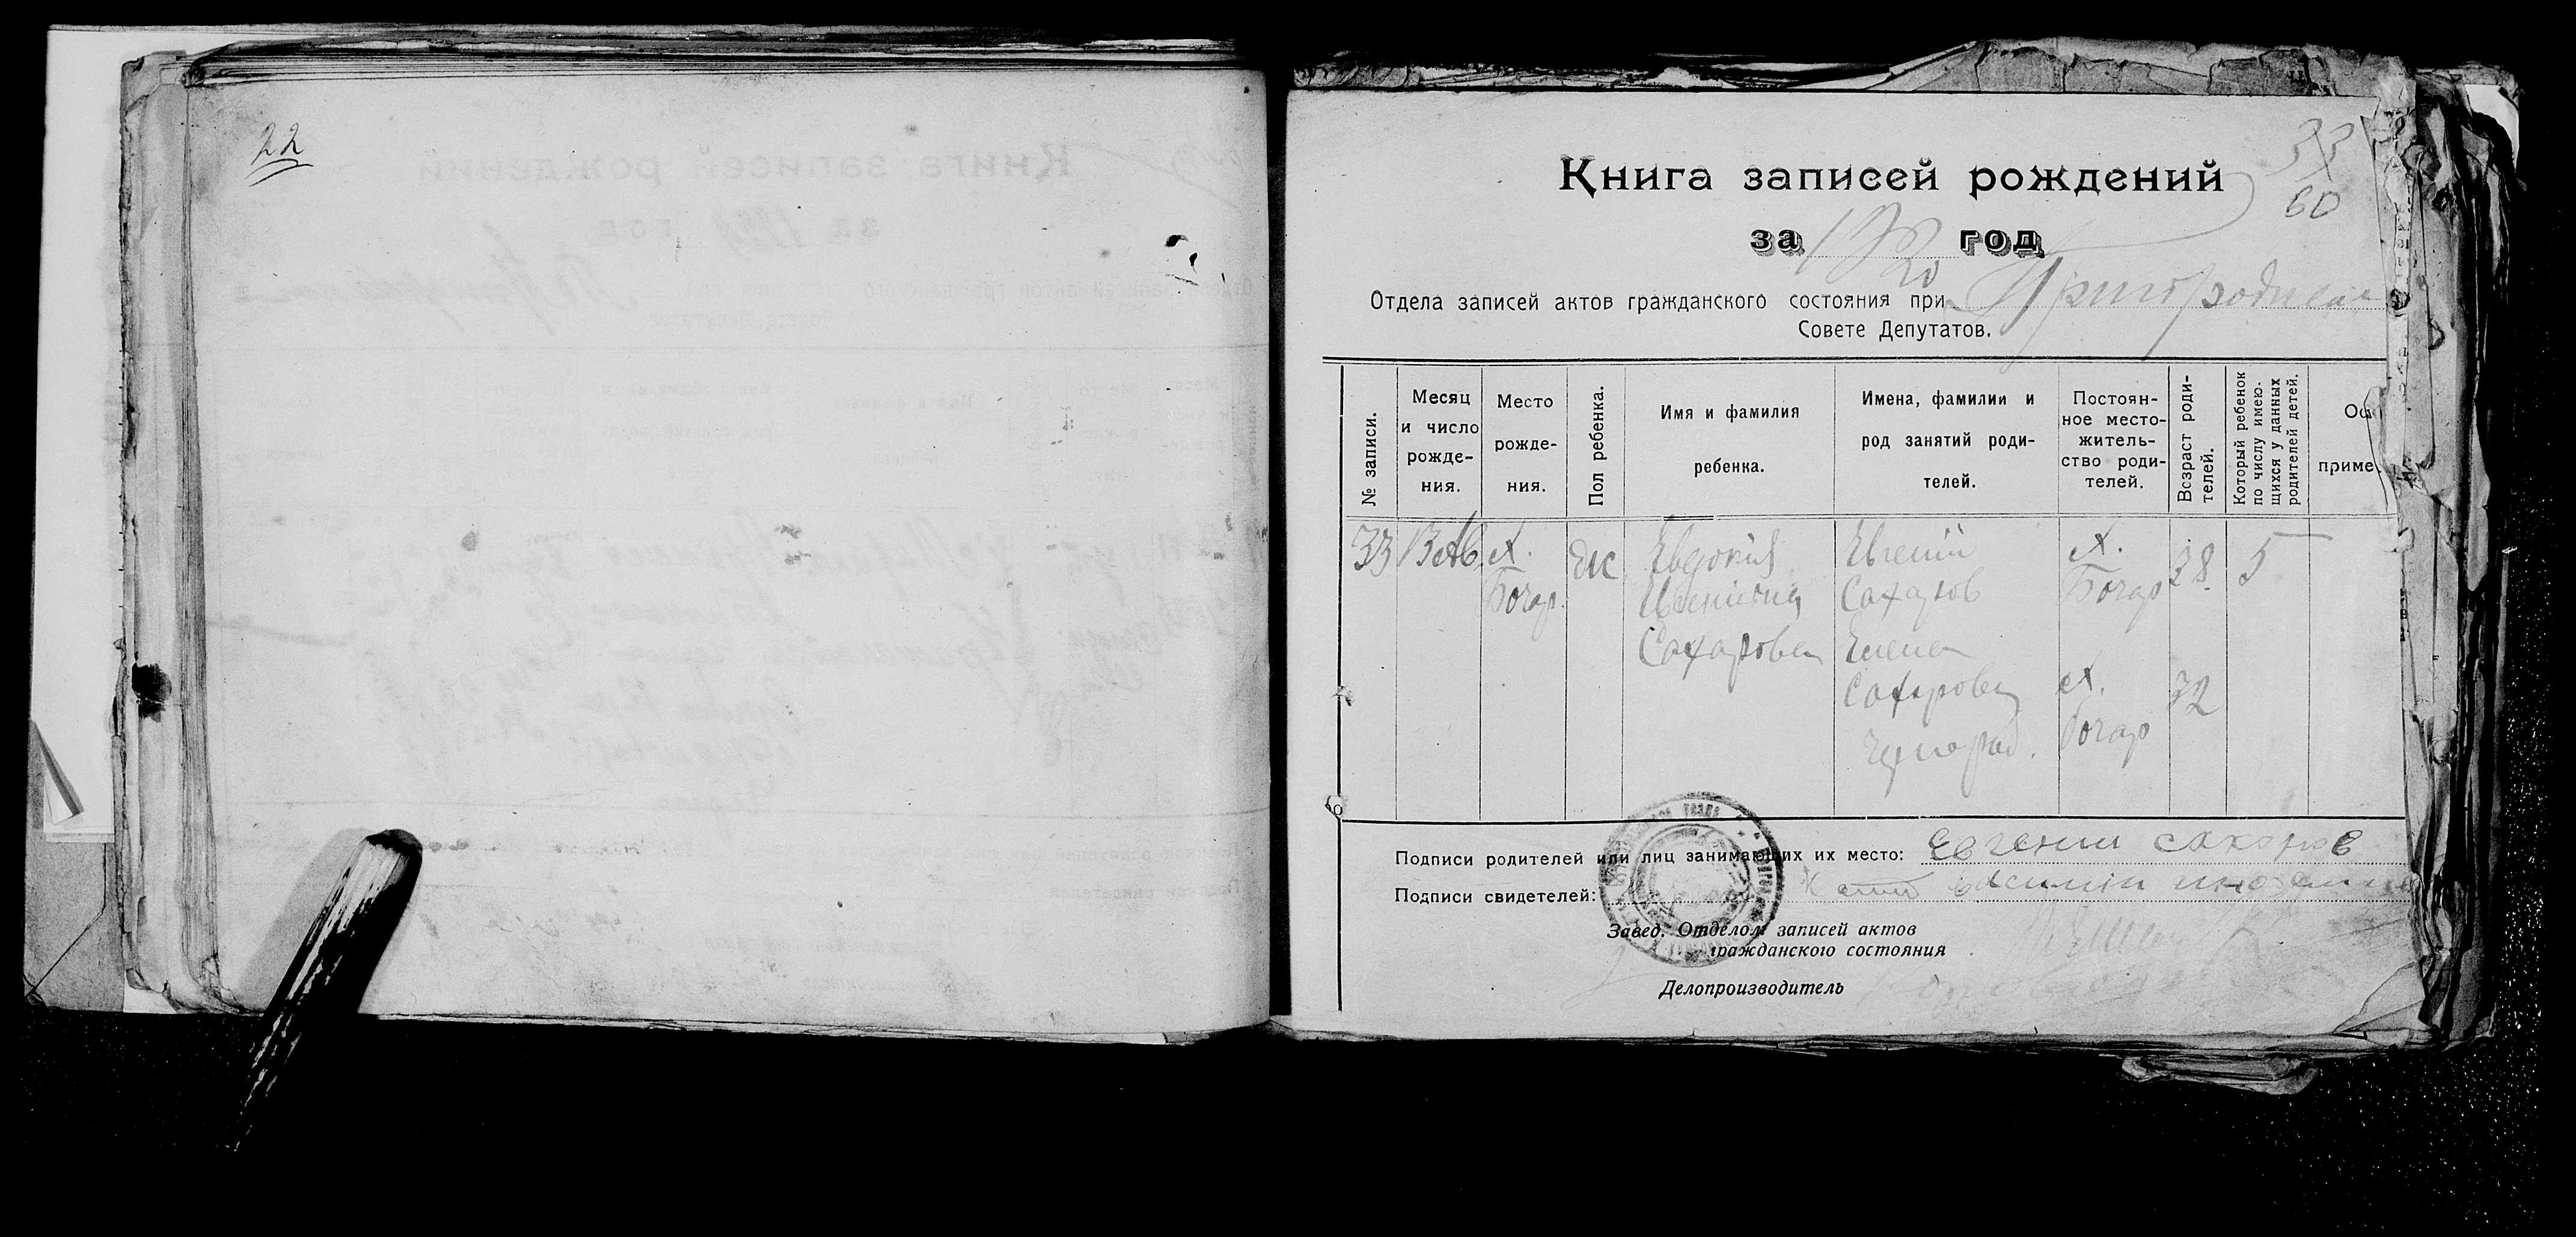 22
33
60
Книга записей рождений
за 1920 год
Отдела записей актов гражданского состояния при Пригородном
Совете Депутатов.
№ записи.
Месяц
и число
рожде-
ния.
Место
рожде-
ния.
Пол ребенка.
Имя и фамилия
ребенка.
Имена, фамилии и
род занятий роди-
телей.
Постоян-
ное место-
житель-
ство роди-
телей.
Возраст роди-
телей.
Который ребенок
по числу имею-
щихся у данных
родителей детей.
Ос
приме
33
13 Ав
х.
Бочар.
Жс
Евдокия
Евгениевна
Сахарова
Евгений
Сахаров
Елена
Сахарова
х.
Бочар
х.
Бочар
38
32
5
Подписи родителей или лиц занимающих их место: Евгении сахаров
Подписи свидетелей:
Завед. Отделом записей актов
гражданского состояния
Делопроизводитель